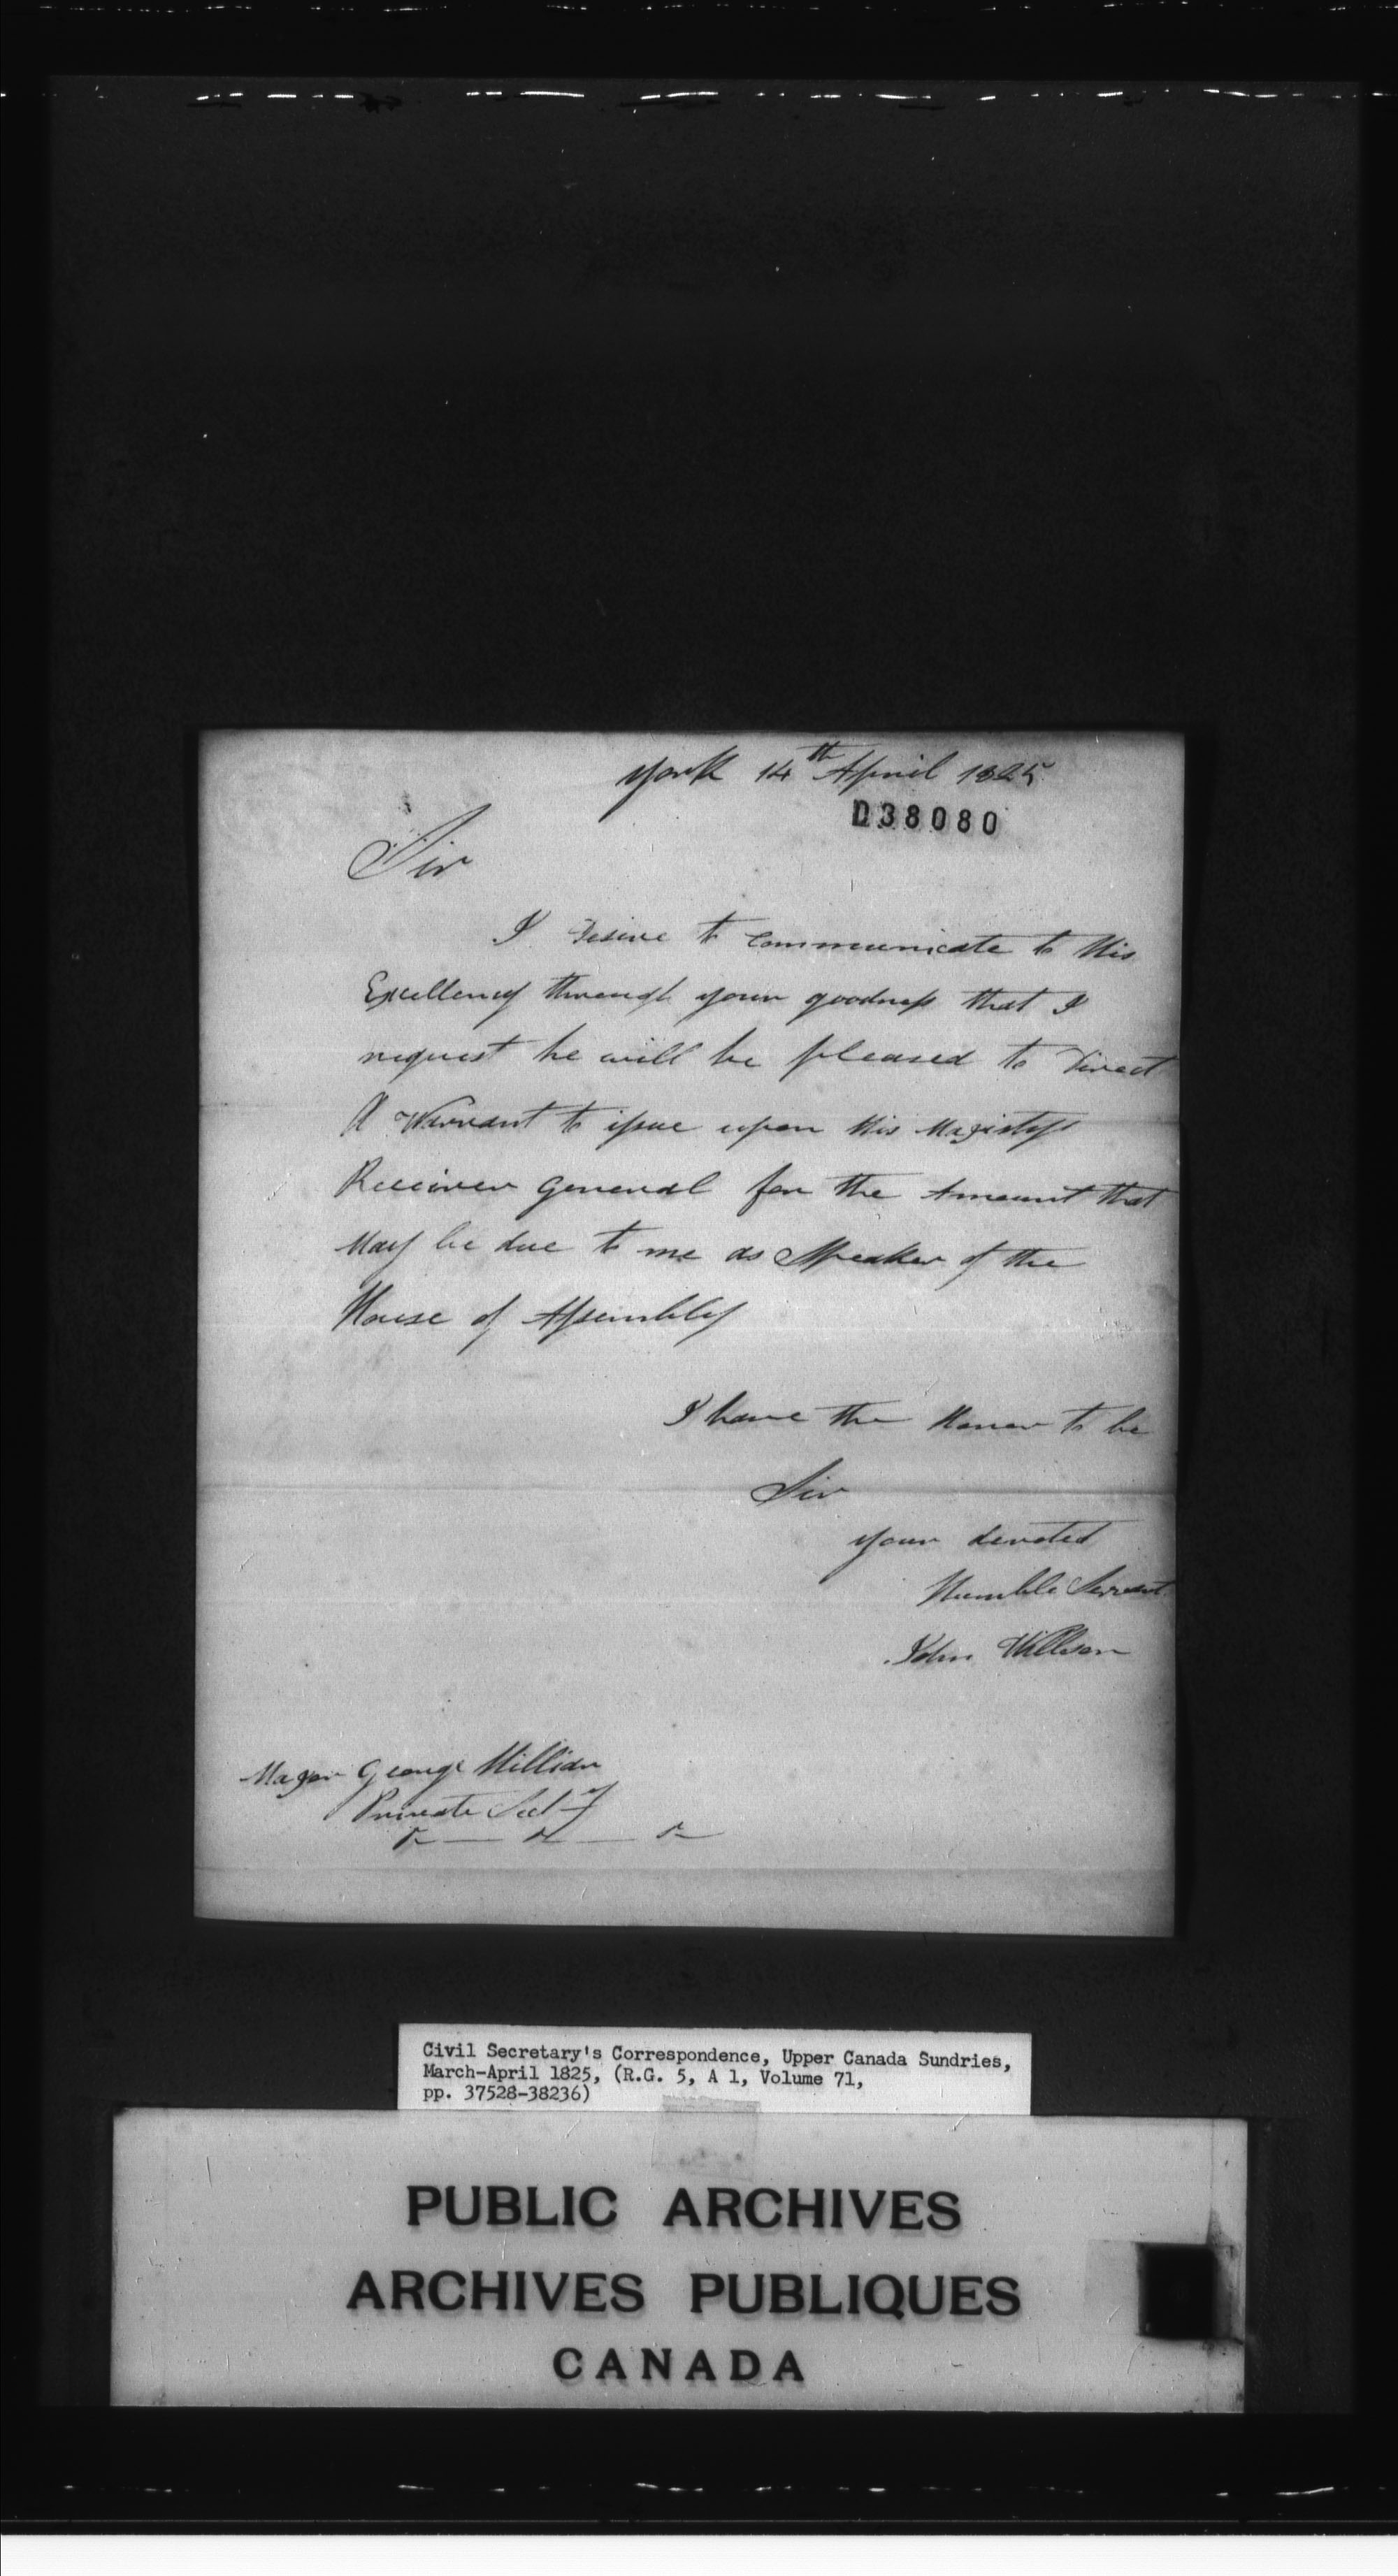 York 14th April 1825
D38080
Sir
I Desire to Communicate to His
Excellency through your goodness that I
request he will be pleased to Direct
A Warrant to issue upon His Magistys
Receiver General for the Amount that
May be due to me as Speaker of the
House of Assembly
I have the Honor to be
Sir
your devoted
Humble Servant
John Willson
Major George Hillier
Private Secty
Civil Secretary's Correspondence, Upper Canada Sundries,
March-April 1825, (R.G. 5, A 1, Volume 71,
pp. 37528-38236)
PUBLIC ARCHIVES
ARCHIVES PUBLIQUES
CANADA